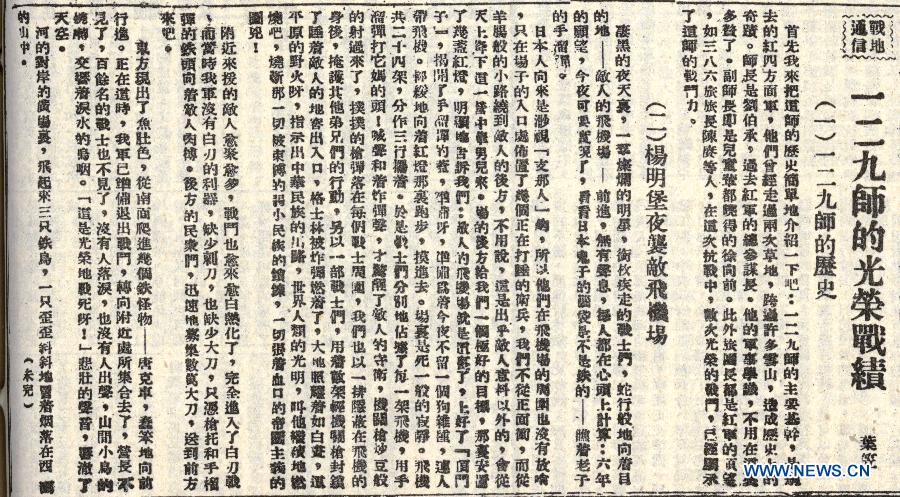 戰地通信
一二九師的光榮戰績
葉笠
(一)一二九師的歷史
首先我來把這師的歷史簡單地介紹一下吧:一二九師的主要基幹,是過
去的紅四方面軍,他們曾經走過兩次草地,跨過許多雪山,造成歷史上的
奇蹟。師長是劉伯承,過去紅軍的總參謀長。他的軍事學識,不用在這
多贅了。副師長即是兒童輩都曉得的徐向前。此外旅團長都是紅軍的
,如三八六旅旅長陳賡等人,在這次抗戰中,數次光榮的戰鬥,已經顯示
了這師的戰鬥力。
(二)楊明堡夜襲敵飛機場
漆黑的夜天裏,一顆燦爛的明星,銜枚疾走的戰士們,蛇行般地向着目
的地——敵人的飛機場——前進,無有聲息,每人都在心頭上計算:六年
的願望,今夜可要實現了,看看日本鬼子的腦袋是不是鉄的——瞧着老子
的手溜彈。
日本人向來是渺視「支那人」的,所以他們在飛機場的周圍也沒有放哨
,只在場子的入口處佈置了幾個正在打睡的衛兵,我們不從正面衝,而從
羊腸般的小路繞到敵人的後方,不用說,這是出乎敵人意料以外的,會從
天上降下這一營中華男兒來。場的後方給我們一個極好的目標,那裏安置
了幾盞紅燈,明顯地告訴我們:敵人的飛機場就是這裏了,上好了「頂門
子」,揭開了手溜彈的蓋,準備好呀,準備爲着今夜不留一個狗雜種,連人
帶飛機。輕輕地向着紅燈那裏跑步,摸進去。場裏是死一般的寂靜。飛機
共二十四架,分作三行擺着。於是戰士們分別地佔據了每一架飛機,用手
溜彈打它媽的頭!喊聲和着炸彈聲,才驚醒了敵人的守衛,機關槍炒豆般
的射過來了,撲撲的槍彈落在每個戰士周圍,我們也以一排隱蔽在飛機的
身後,掩護其他弟兄們的行動,另以一部戰士們,用着敵架輕機關槍封鎖
了睡着敵人的地窖出入口,格士林被炸彈燃着了,大地照耀着如白晝,這
平原的野火呀,指示出中華民族的出路,世界人類的光明,叫他繼續地燃
燒吧,燒斷那一切被束縛的弱小民族的鎖鍊,一切張着血口的帝國主義的
圖兇!
附近來援的敵人愈聚愈多,戰鬥也愈來愈白熱化了,完全進入了白刃戰
,而當時我軍沒有白刃的利器,缺少刺刀,也缺少大刀,只憑槍托和手榴
彈的鉄頭向着敵人肉搏。後方的民衆們,迅速地募集數萬大刀,送到前方
來吧。
東方現出了魚肚色,從南面爬進幾個鉄怪物——唐克車,蠢笨地向前
行進。正在這時,我軍已準備退出戰鬥,轉向附近處所集合去了,營長不
見了,百餘名的戰士也不見了,沒有人落淚,也沒有人出聲,山間小鳥的
,交響着淚水的嗚咽。「這是光榮地戰死呀!」悲壯的聲音,響澈了
天空。
河的對岸的廣場裏,飛起來三只鉄鳥,一只歪歪斜斜地冒着烟落在西面
的山中。
(未完)
WWW.NEWS.CN